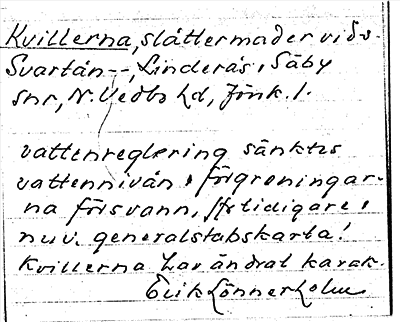 Kvillerna, slåttermader vid s.
Svartån--, Linderås, Säby
snr, N. Vedbo hd, Jönk. l.
vattenreglering sänktes
vattennivån, förgreningar-
na försvann, tidigare,
nuv. generalstabskarta!
Kvillerna har ändrat karak.
Erik Lönnerholm